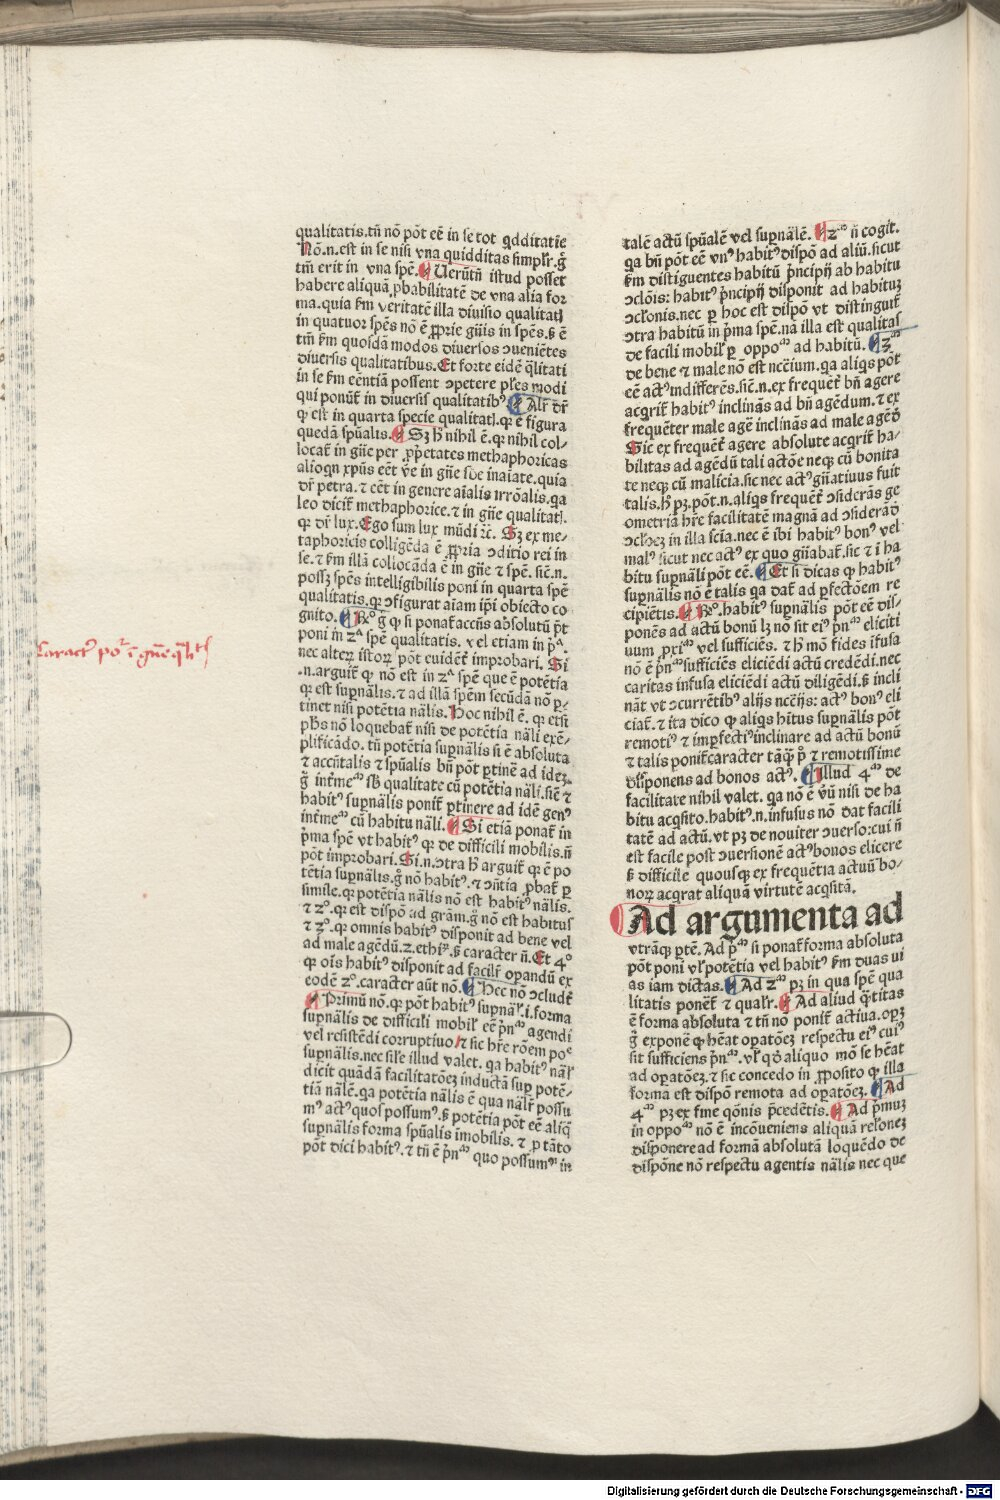 qualitatis.tñ nō pōt eē in se tot qdditatiē
Nō.n.est in se nisi vna quidditas simplr̄.g̊
tm̄ erit in vna spē. Uerūtñ istud posset
habere aliquā ꝓbabilitatē de vna alia for
ma.quia s̄m veritatē illa diuisio qualitatꝭ
in quatuor spēs nō ē ꝓprie gn̄is in spēs.s̄ ē
tm̄ s̄m quosdā modos diuersos ɔueniētes
diuersis qualitatibus. Et forte eidē q̄litati
in se s̄m eēntiā possent ɔpetere pl̄es modi
qui ponūt̄ in diuersis qualitatibꝰ. Alr̄ dr̄
ꝙ est in quarta specie qualitatꝭ.qꝛ ē figura
quedā sp̄ualis. Sꝫ h̄ nihil ē.qꝛ nihil col-
locat̄ in gn̄e per ꝓp̄etates methaphoricas
alioqn xp̄us eēt v̄e in gn̄e rei inaīate.quia
dr̄ petra.⁊ eēt in genere aīalis irrōalis.qa
leo dicit̄ methaphorice.⁊ in gn̄e qualitatꝭ.
qꝛ dr̄ lux. Ego sum lux mūdi ⁊c̄. Sꝫ ex me-
taphoricis colligēda ē ꝓpria ɔditio rei in
se.⁊ s̄m illā collocāda ē in gn̄e ⁊ spē. sic̄.n.
possꝫ spēs intelligibilis poni in quarta spē
qualitatis.qꝛ ɔfigurat aīam ip̄i obiecto co
gnito. Rº g̊ ꝙ si ponat̄ accn̄s absolutū p̄t
poni in 2ᵃ spē qualitatis. vel etiam in pᵃ.
nec alteꝝ istoꝝ pōt euidēt̄ improbari. Si
.n.arguit̄ ꝙ nō est in 2ᵃ spē que ē potētia
qꝛ est supnālis.⁊ ad illā spēm secūdā nō ꝑ-
tinet nisi potētia nālis. Hoc nihil ē. qꝛ etsi
ph̄s nō loquebat̄ nisi de potētia nāli exē-
plificādo. tñ potētia supnālis si ē absoluta
⁊ accn̄talis ⁊ sp̄ualis bn̄ pōt ꝑtinē ad ideꝫ.
g̊ int̄meᵃᵐ sb̄ qualitate cū potētia nāli.sic̄ ⁊
habitꝰ supnālis ponit̄ ꝑtinere ad idē genꝰ
int̄meᵃᵐ cū habitu nāli. Si etiā ponat̄ in
p̄ma spē vt habitꝰ qꝛ de difficili mobilis.ñ
pōt improbari. Si.n.ɔtra h̄ arguit̄ qꝛ ē po
tētia supnālis.g̊ nō habitꝰ.⁊ ɔn̄tia ꝓbat̄ ꝑ
simile.qꝛ potētia nālis nō est habitꝰ nālis.
⁊ 2º.qꝛ est dispō ad grām.g̊ nō est habitus
⁊ 2º.qꝛ omnis habitꝰ disponit ad bene vel
ad male agēdū.2.ethiꝝ.s̄ caracter ñ. Et 4º
qꝛ oīs habitꝰ disponit ad facilr̄ oꝑandū ex
eodē 2º.caracter aūt nō. Hec nō ɔcludt̄
Primū nō.qꝛ pōt habitꝰ supnālr̄.i.forma
supnālis de difficili mobilr̄ eē p̄nᵃᵐ agendi
vel resistēdi corruptiuo.⁊ sic h̄re rōem poᵉ
supnālis.nec sil̄e illud valet. qa habitꝰ nālr̄
dicit quādā facilitatōeꝫ inductā sup potē-
tiā nālē.qa potētia nālis ē qua nālr̄ possu
mꝰ actꝰ quos possumꝰ.s̄ potētia pōt eē aliq̄
supnālis forma sp̄ualis imobilis. ⁊ ꝑ tāto
pōt dici habitꝰ.⁊ tñ ē p̄nᵃᵐ quo possumꝰ in
talē actū sp̄ualē vel supnālē. 2ᵃᵐ ñ cogit.
qa bn̄ pōt eē vnꝰ habitꝰ dispō ad aliū.sicut
s̄m distiguentes habitū p̄ncipij ab habitu
ɔclōis: habitꝰ p̄ncipij disponit ad habituꝫ
ɔclōnis.nec ꝑ hoc est dispō vt distinguit̄
ɔtra habitū in p̄ma spē.nā illa est qualitas
de facili mobilr̄ ꝑ oppoᵃᵐ ad habitū. 3ᵃᵐ
de bene ⁊ male nō est ncc̄ium.qa aliqs pōt
eē actꝰ indifferēs.sic̄.n.ex frequēt̄ bn̄ agere
acqrit̄ habitꝰ inclināˢ ad bn̄ agēdum.⁊ ex
frequēter male agē inclināˢ ad male agēdū
Sic ex frequēt̄ agere absolute acqrit̄ ha-
bilitas ad agēdū tali actōe neqꝫ cū bonita
te neqꝫ cū malicia.sic nec actꝰ gn̄atiuus fuit
talis.h̄ pꝫ.pōt.n.aliqs frequēt̄ ɔsiderās ge
ometriā h̄re facilitatē magnā ad ɔsiderādū
ɔcl̄oeꝫ in illa scīa.nec ē ibi habitꝰ bonꝰ vel
malꝰ sicut nec actꝰ ex quo gn̄abat̄.sic ⁊ i ha
bitu supnāli pōt eē. Et si dicas ꝙ habitꝰ
supnālis nō ē talis qa dat̄ ad ꝑfectōem re
cipiētis. Rº.habitꝰ supnālis pōt eē dis-
ponēs ad actū bonū lꝫ nō sit eiꝰ p̄nᵃᵐ eliciti
uum ꝓxiᵃᵐ vel sufficiēs. ⁊ h̄ mō fides īfusa
nō ē p̄nᵃᵐ sufficiēs eliciēdi actū credēdi.nec
caritas infusa eliciēdi actū diligēdi.s̄ incli
nāt vt ɔcurrētibꝰ alijs ncc̄ijs: actꝰ bonꝰ eli
ciat̄.⁊ ita dico ꝙ aliqs h̄itus supnālis pōt
remotiꝰ ⁊ imꝑfectiꝰ inclinare ad actū bonū
⁊ talis ponit̄ caracter tāq̄ p̊ ⁊ remotissime
disponens ad bonos actꝰ. Illud 4ᵃᵐ de
facilitate nihil valet. qa nō ē v̄ū nisi de ha
bitu acqsito.habitꝰ.n.infusus nō dat facili
tatē ad actū.vt pꝫ de nouiter ɔuerso:cui ñ
est facile post ɔuersionē actꝰ bonos elicere
s̄ difficile quousqꝫ ex frequētia actuū bo-
noꝝ acqrat aliquā virtutē acqsitā.
Ad argumenta ad
vtrāqꝫ ꝑtē. Ad pᵃᵐ si ponat̄ forma absoluta
pōt poni vl̄ potētia vel habitꝰ s̄m duas vi
as iam dictas. Ad 2ᵃᵐ pꝫ in qua spē qua
litatis ponēt̄ ⁊ qualr̄. Ad aliud q̄titas
ē forma absoluta ⁊ tñ nō ponit̄ actiua.opꝫ
g̊ exponē ꝙ h̄eat oꝑatōeꝫ respectu eiꝰ cuiꝰ
sit sufficiens p̄nᵃᵐ.vl̄ qd̊ aliquo mō se h̄eat
ad oꝑatōeꝫ.⁊ sic concedo in ꝓposito ꝙ illa
forma est dispō remota ad oꝑatōeꝫ. Ad
4ᵃᵐ pꝫ ex fine qōnis p̄cedētis. Ad p̄muꝫ
in oppoᵃᵐ nō ē incōueniens aliquā relōneꝫ
disponere ad formā absolutā loquēdo de
dispōne nō respectu agentis nālis nec que
Caractꝰ poʳ ī gn̄e q̄litꝭ
Digitalisierung gefördert durch die Deutsche Forschungsgemeinschaft - DFG